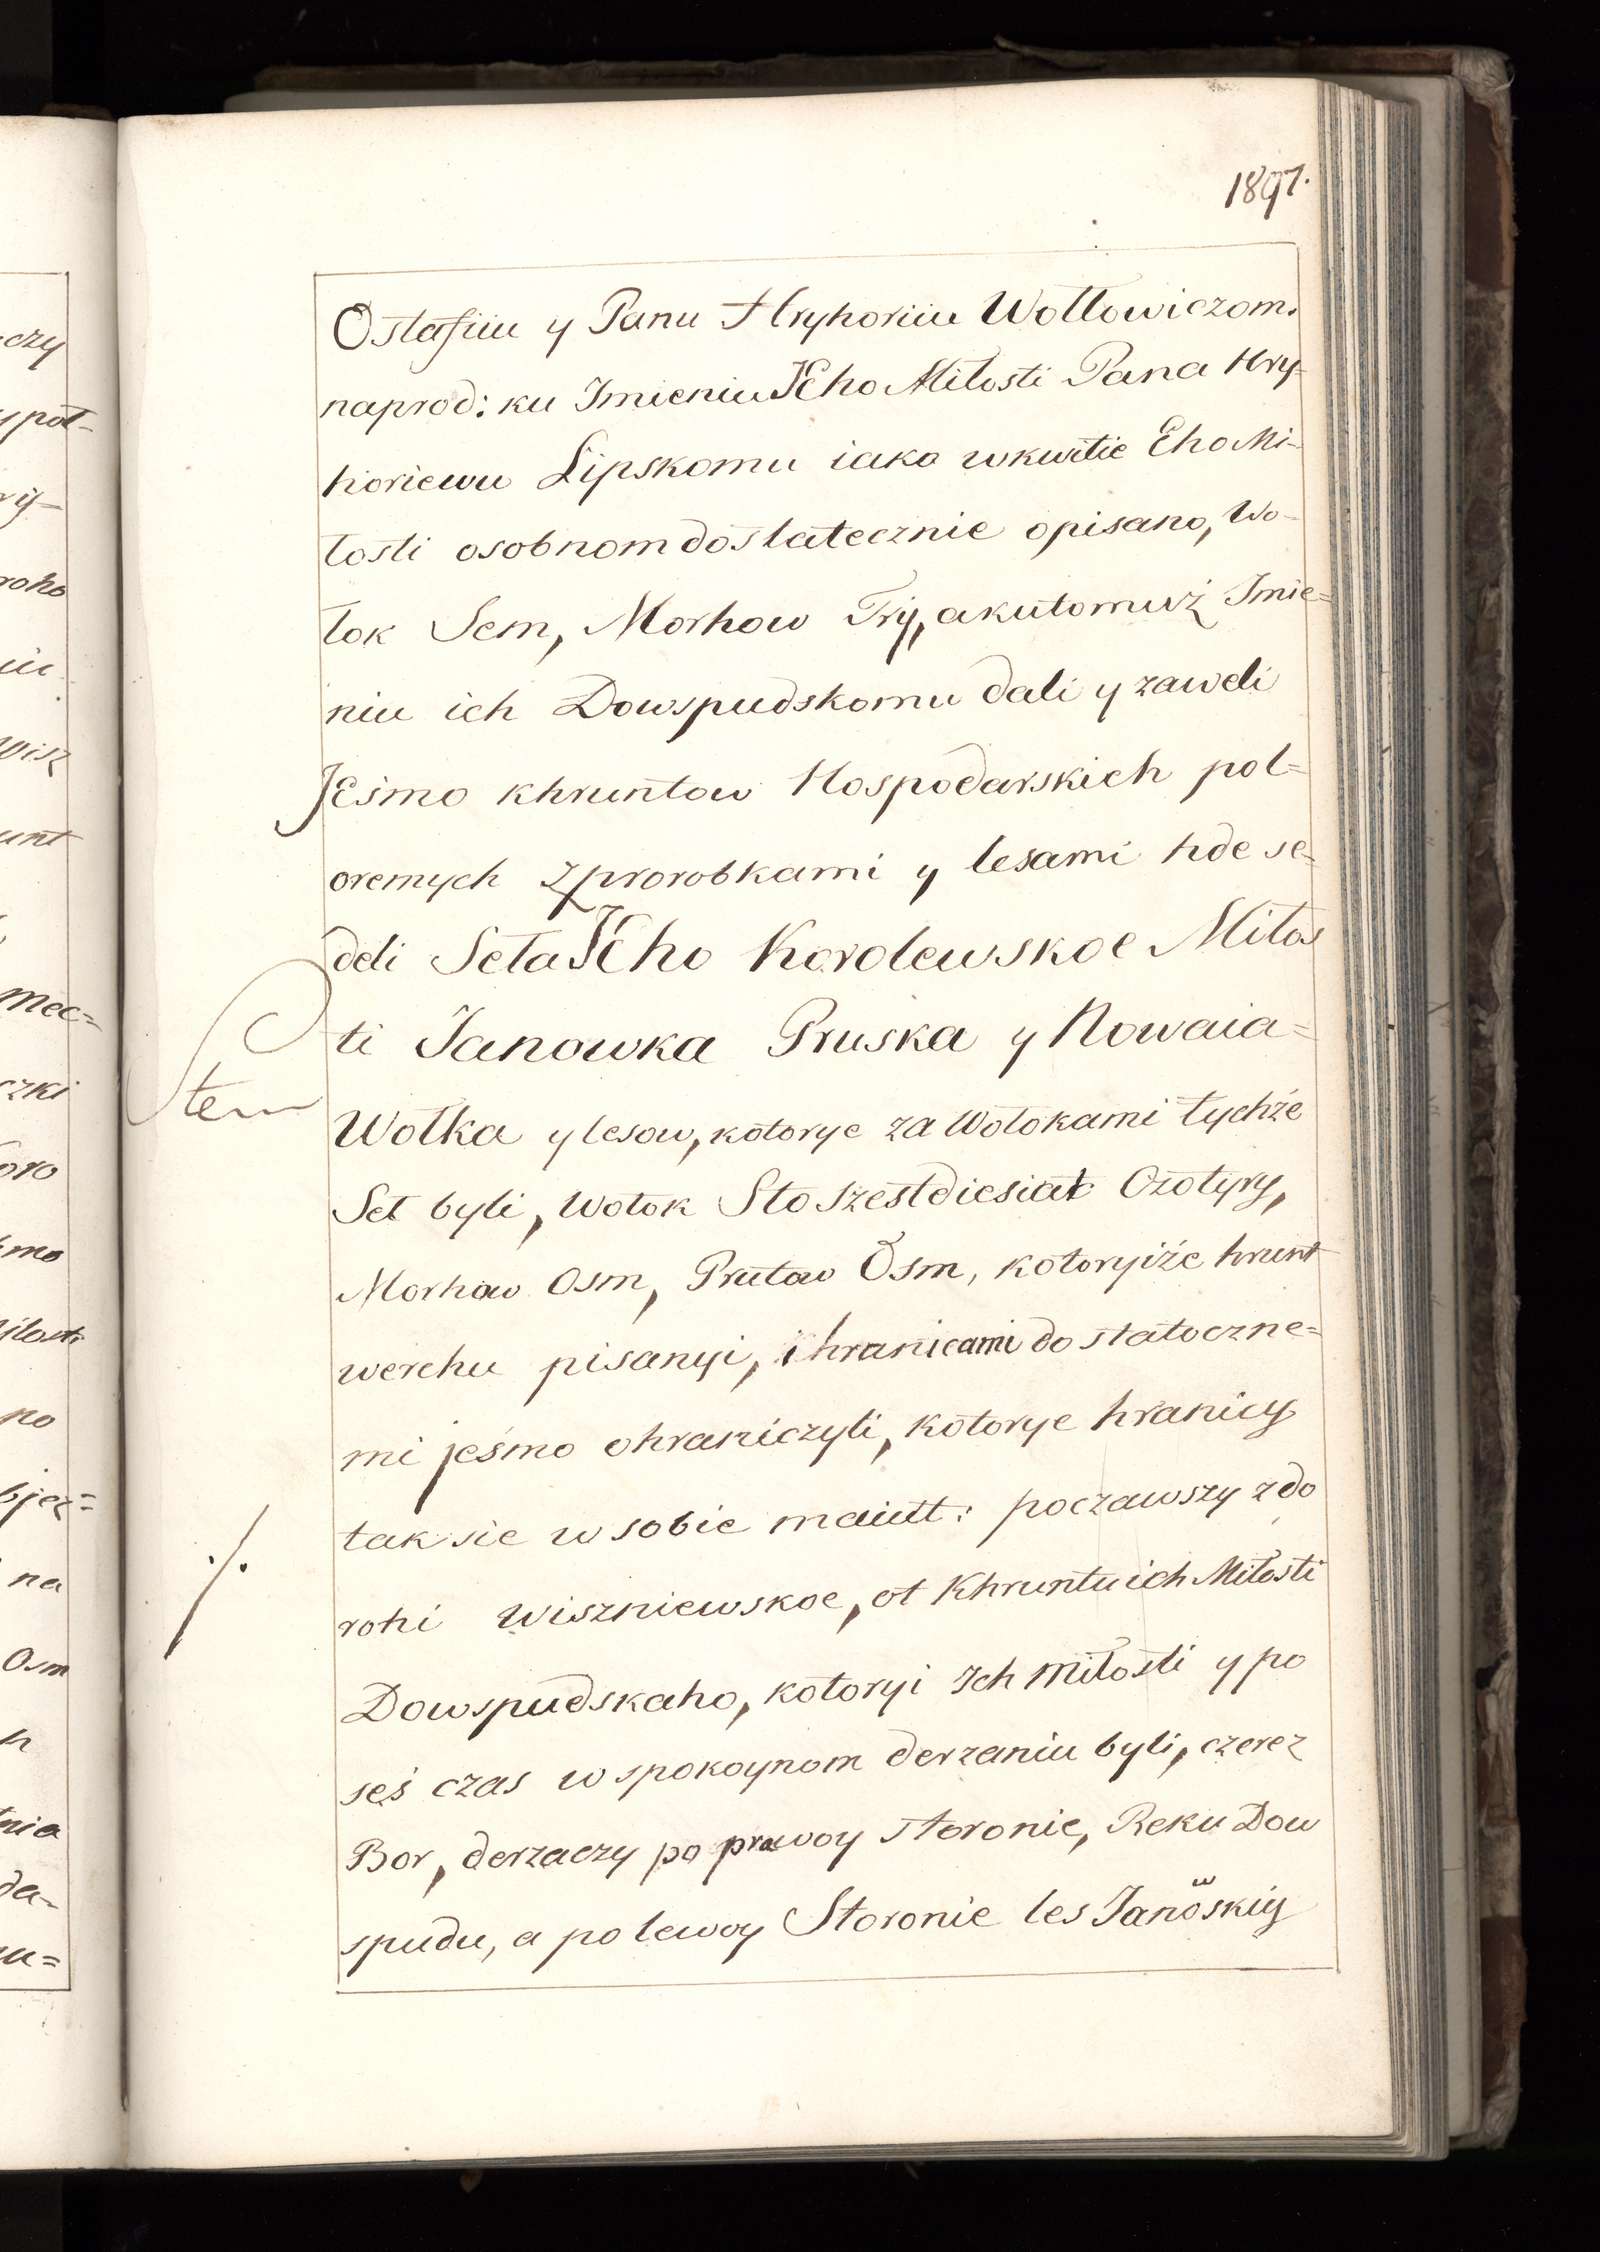 1897.
Ostafiiu y Panu Hryhoriiu Wołłowiczom.
naprod: ku Imieniu JEho Miłosti Pana Hry-
horiewu Lipskomu iako wkwitie Eho Mi-
łosti osobnom dostatecznie opisano, Wo-
łok Sem, Morhow Try, akutomuż Imie=
niu ich Dowspudskomu dali y zaweli
JEśmo Khruntow Hospodarskich pol=
oremych zprorobkami y lesami hde se-
deli Seła JEho Korolewskoe Miłos
ti Janowka Pruska y Nowaia=
Wolka y lesow, kotorye za Wołokami tychże
Seł byli, Wołok Sto szestdiesiat Czotyry,
Morhow Osm, Prutow Osm, kotoryiże hrunt
werchu pisanyi, i hranicami dostatoczne=
mi jeśmo ohraniczyli, kotorye hranicy
tak sie w sobie maiutt: poczawszy z do
rohi Wiszniewskoe, ot Khruntu ich Miłosti
Dowspudskaho, kotoryi Ich Miłosti y po
seś czas w spokoynom derzaniu byli, czerez
Bor, derzaczy po prawoy storonie, Reku Dow
spudu, a po lewoy Storonie les Janowskiy
./.
czy
ypoł-
ry-
roho
iu
Wisz
unt
Mec=
czki
oro
mo
iłosti
no
bjez=
na
Osm
h
nia
da-
u=